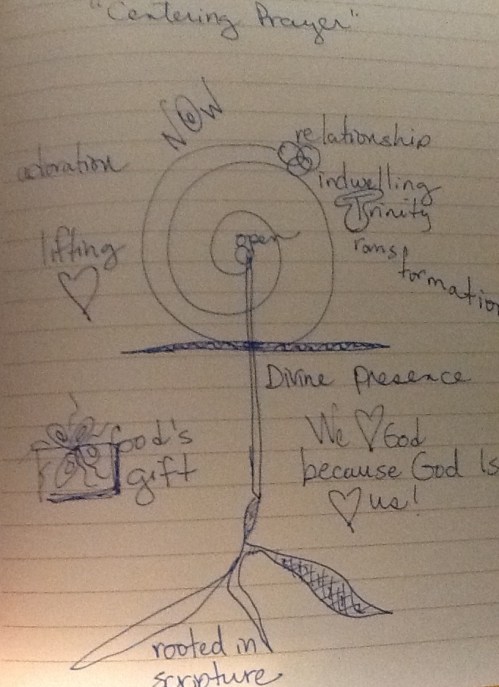 "Centering Prayer"
NOW
adoration
relationship
indwelling
Trinity
rans
formation
lifting
open
Divine Presence
God's
gift
We ♡ God
because God Is
♡ us!
rooted in
scripture